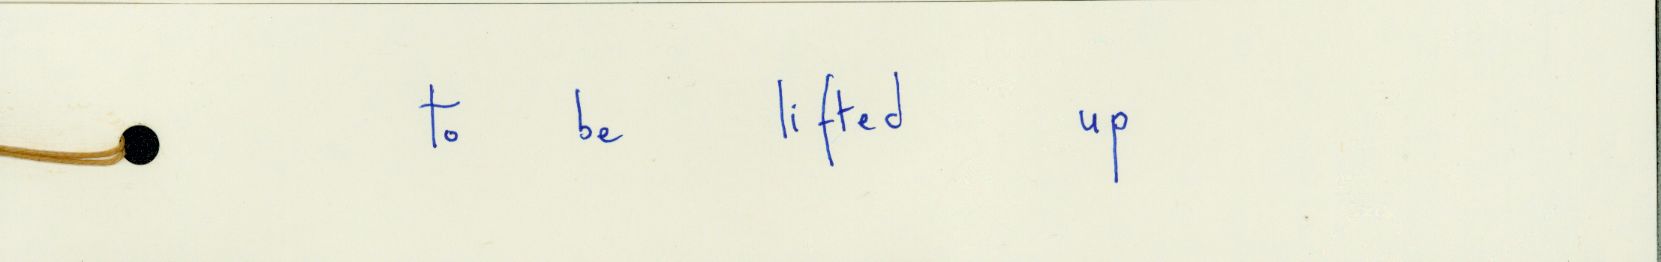 to be lifted up